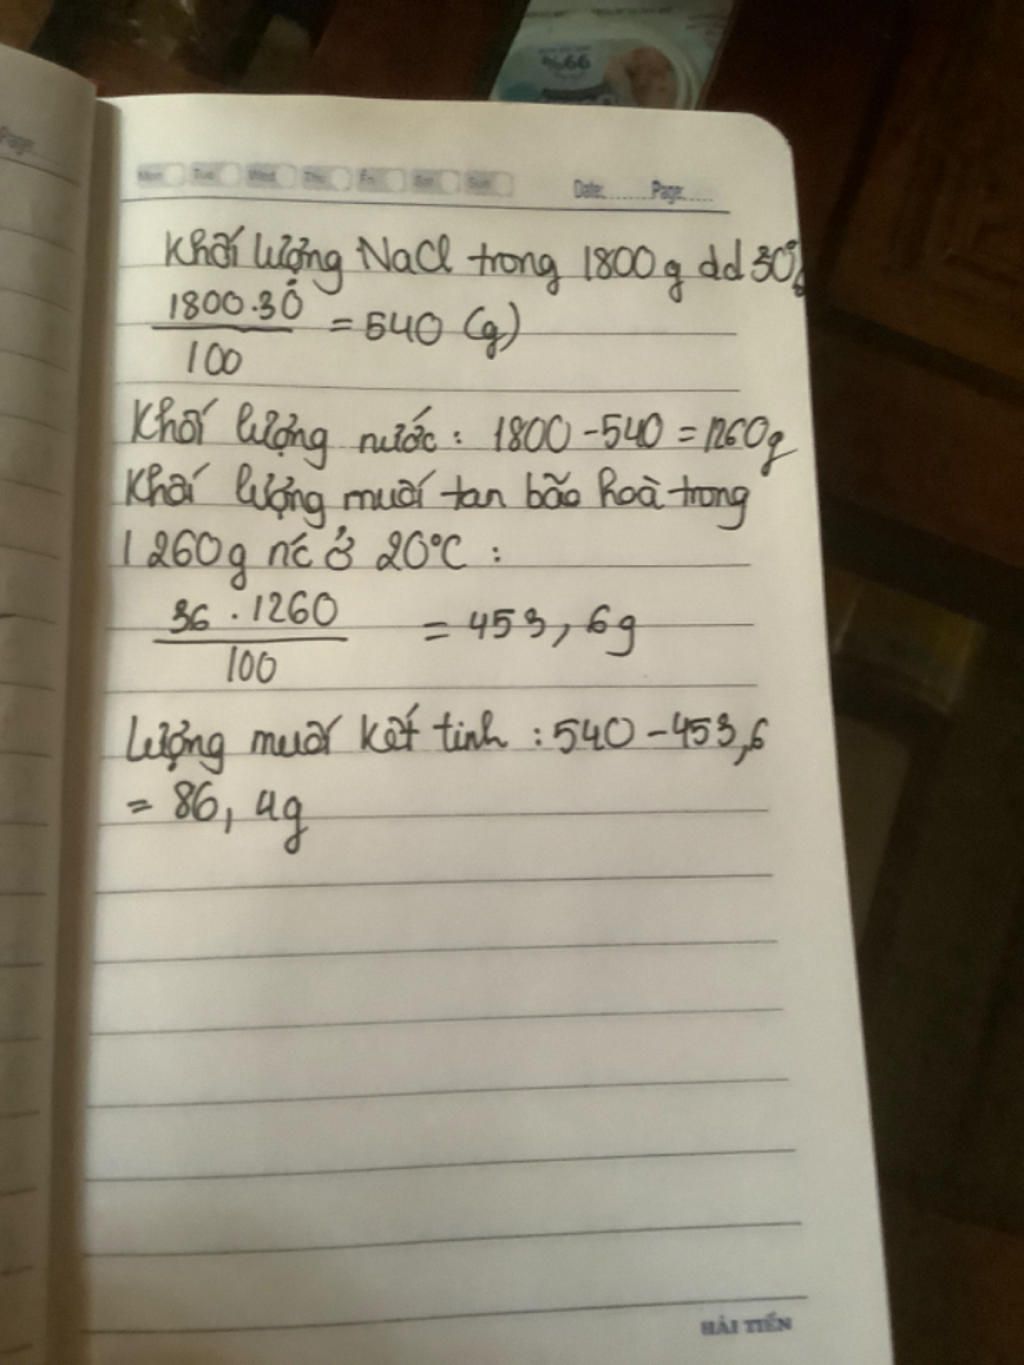 Page:
Mon Tue Wed Thu Fri Sat Sun Date:........Page:......
Khối lượng NaCl trong 1800g dd 30%
1800.30
100
= 540 (g)
Khối lượng nước: 1800 - 540 = 1260g
Khối lượng muối tan bão hoà trong
1260g nc ở 20°C :
36 . 1260
100
= 453, 6g
Lượng muối kết tinh : 540 - 453,6
= 86, 4g
HẢI TIẾN